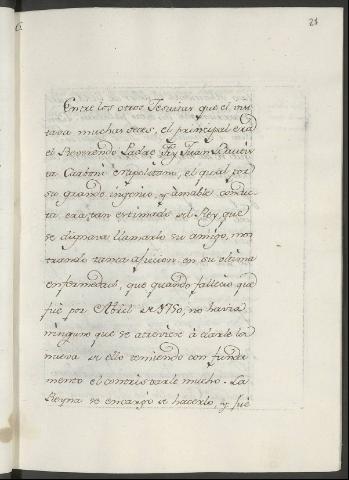 21
Entre los otros Jesuitas que el
tava muchas veces, el principal era
el Reverendo Padre Fray Juan Bautis
ta Carboni Napolitano, el qual por
su grande ingenio, y amable conduc
ta era tan estimado del Rey que
se dignava llamarlo su amigo, mos
trando tanta aficion en su ultima
enfermedad, que quando fallecio que
fue por Abril de 1750, no havia
ninguno que se atreviese à darle la
nueva de ello temiendo con funda
mento el contristarle mucho. La
Reyna se encargó de hacerlo, y fue